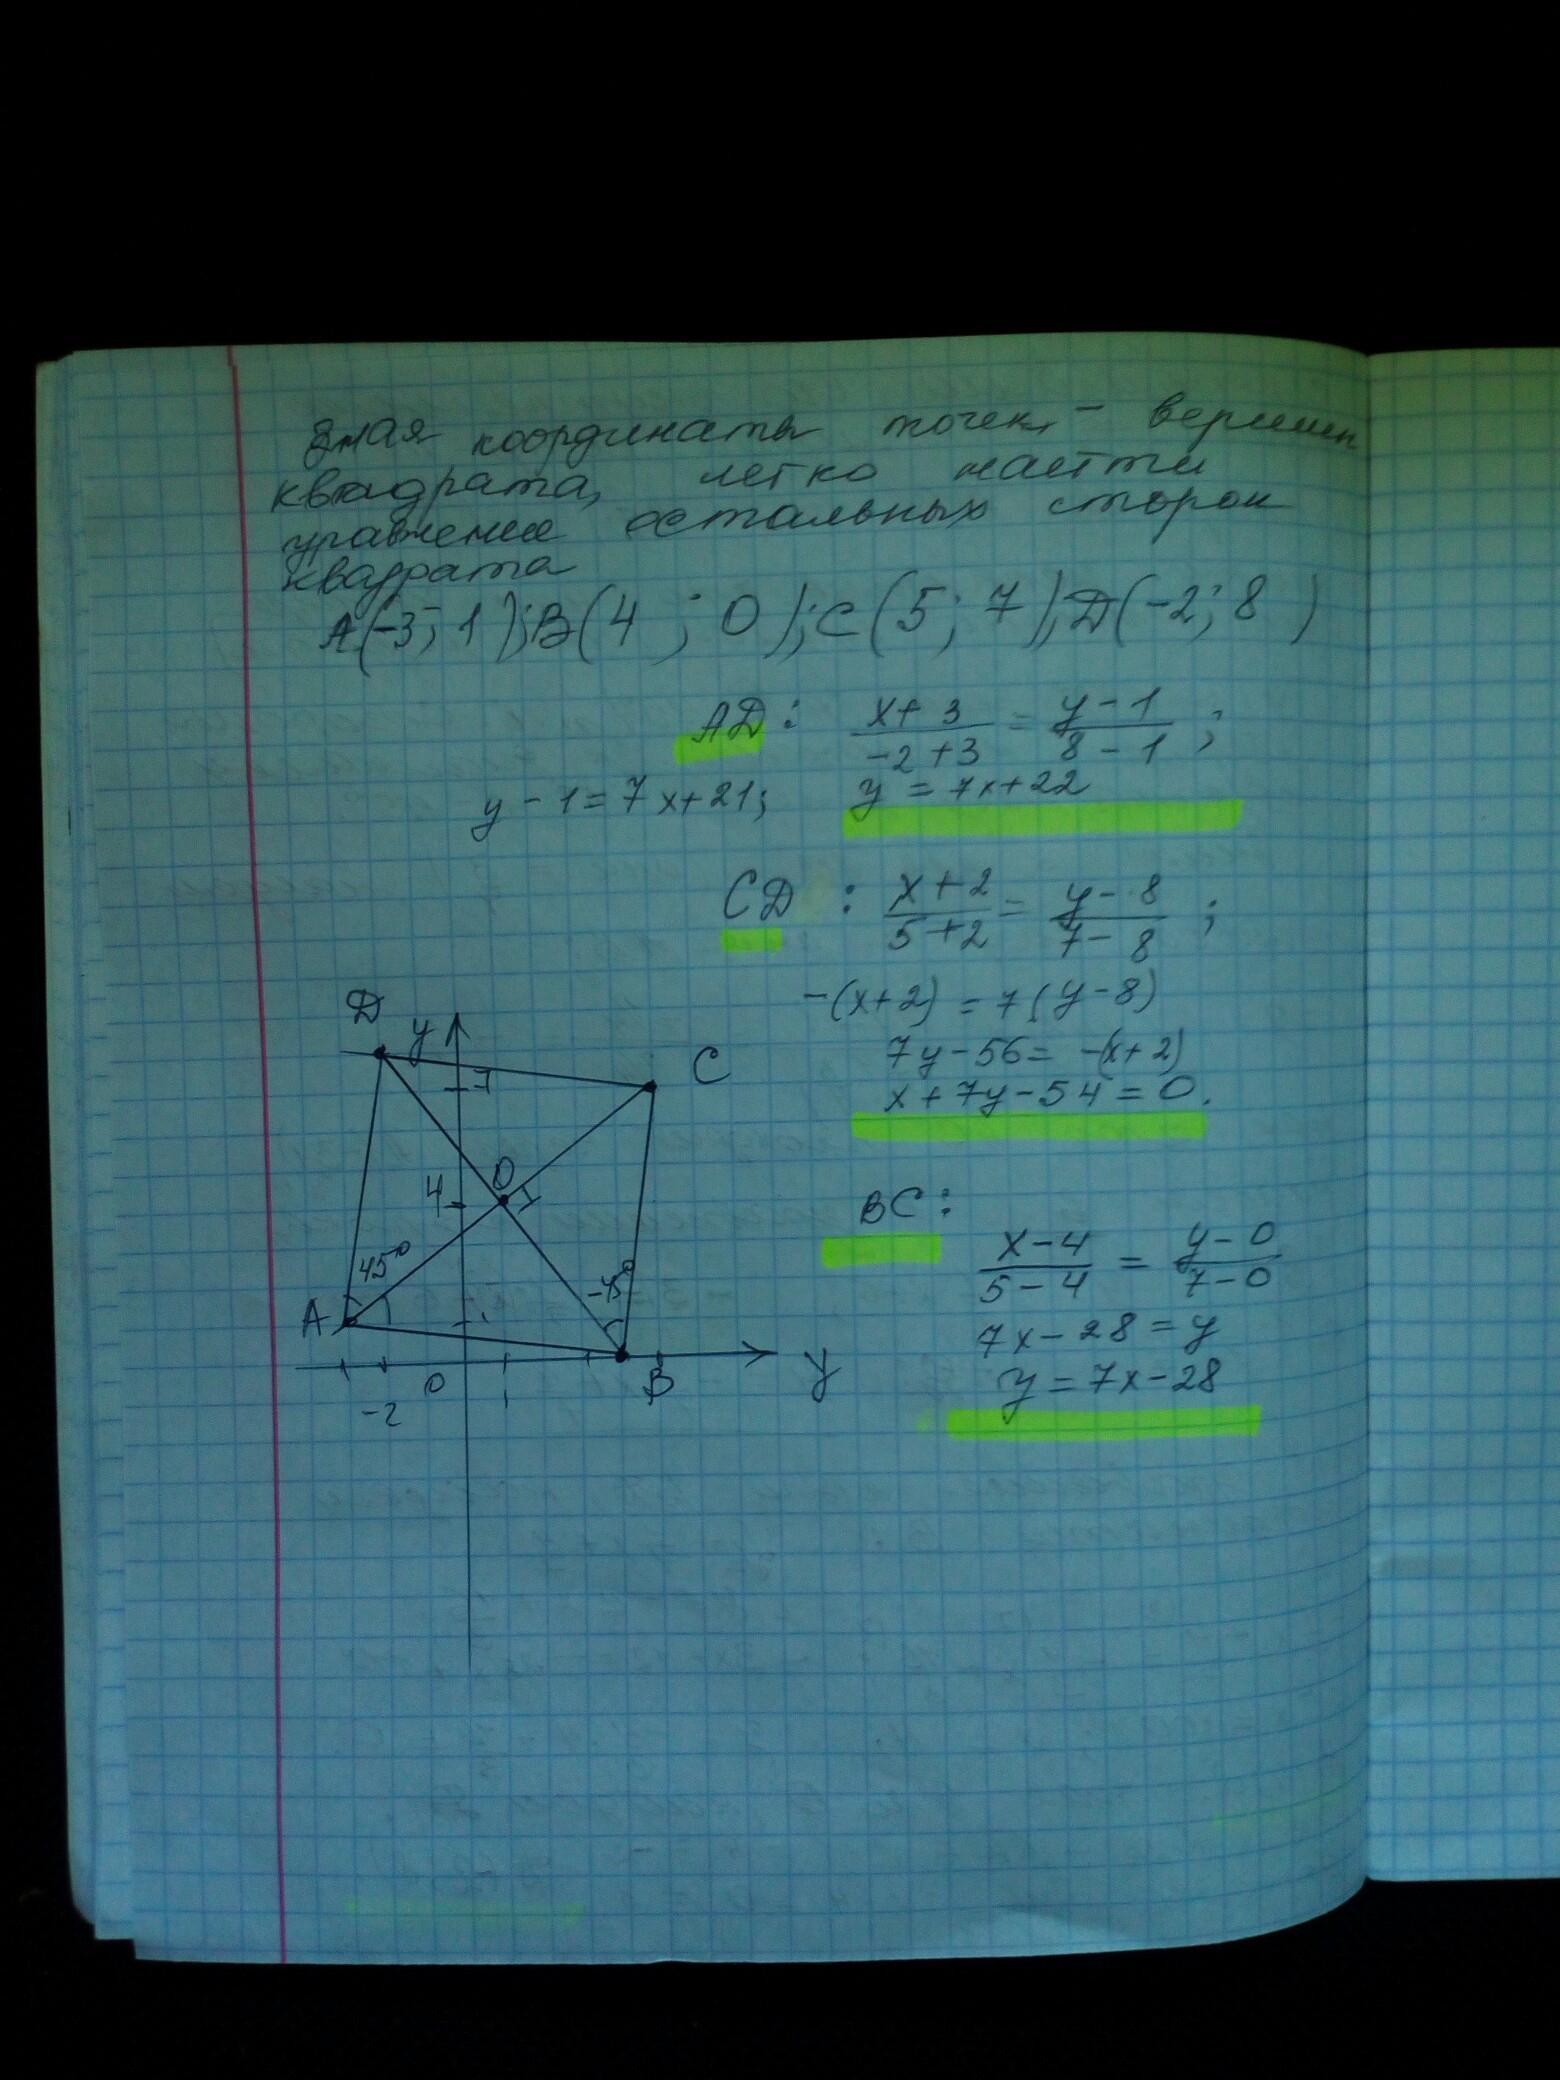 Зная координаты точек - вершин
квадрата, легко найти
уравнение остальных сторон
квадрата
A(-3; 1); B(4 ; 0); C(5; 7); D(-2; 8)
AD: x+3/-2+3 = y-1/8-1 ;
y-1=7x+21; y=7x+22
CD : x+2/5+2 = y-8/7-8 ;
-(x+2) = 7(y-8)
7y-56= -(x+2)
x+7y-54=0.
D y
7 C
O
4
BC:
x-4/5-4 = y-0/7-0
45°
A
7x-28=y
y=7x-28
0 1 B y
-2